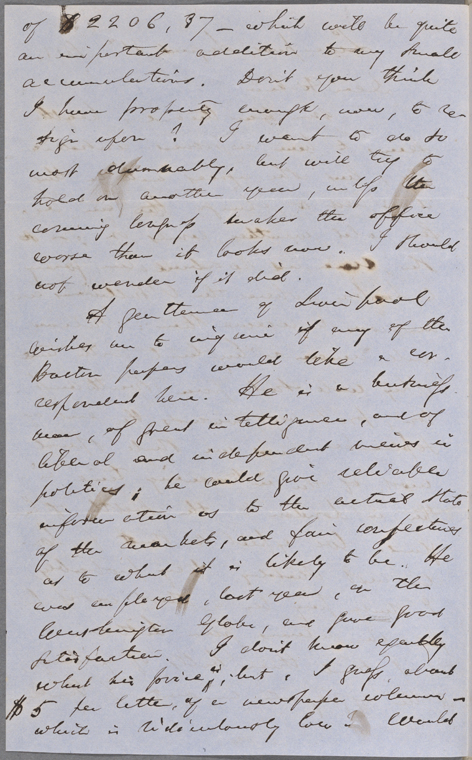 of $2206,37 – which will be quite
an important addition to my small
accumulations. Don't you think
I have property enough, now, to re-
sign upon? I want to do so
most damnably, but will try to
hold on another year, unless the
coming Congress makes the office
worse than it looks now. I should
not wonder if it did.
A gentleman of Liverpool
wishes me to inquire if any of the
Boston papers would like a cor-
respondent here. He is a business
man, of great intelligence, and of
liberal and independent views in
politics; he could give reliable
information as to the actual state
of the markets, and fair conjectures
as to what it is likely to be. He
was employed, last year, on the
Washington Globe, and gave good
satisfaction. I don't know exactly
what his price is; but, I guess, about
$5 per letter, of a newspaper column –
which is ridiculously low. Would